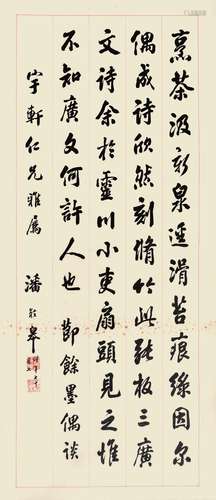 烹茶汲新泉逕滑苔痕綠因尔
偶成诗欣然刻脩竹此張板三廣
文诗余於靈川小吏扇頭見之惟
不知廣文何許人也 節餘墨偶谈
宇軒仁兄雅屬 潘齡皋